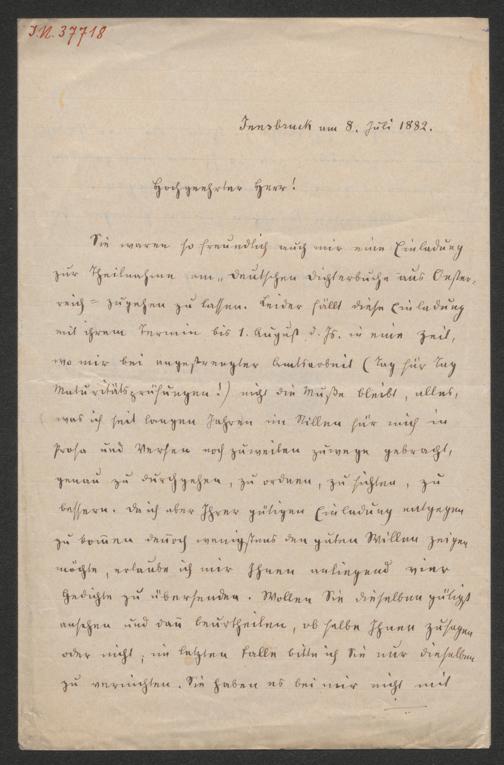 I.N. 37718
Innsbruck am 8. Juli 1882.
Hochgeehrter Herr!
Sie waren so freundlich auch mir eine Einladung
zur Theilnahme am „deutschen Dichterbuche aus Oester-
reich“ zugehen zu lassen. Leider fällt diese Einladung
mit ihrem Termin bis 1. August d. Js. in eine Zeit,
wo mir bei angestrengter Amtsarbeit (Tag für Tag
Maturitätsprüfungen!) nicht die Muße bleibt, alles,
was ich seit langen Jahren im Stillen für mich in
Prosa und Versen noch zuweilen zuwege gebracht,
genau zu durchgehen, zu ordnen, zu sichten, zu
bessern. Da ich aber Ihrer gütigen Einladung entgegen
zu kom̅en den̅och wenigstens den guten Willen zeigen
möchte, erlaube ich mir Ihnen anliegend vier
Gedichte zu übersenden. Wollen Sie dieselben gütigst
ansehen und dan̅ beurtheilen, ob selbe Ihnen zusagen
oder nicht; im letzten Falle bitte ich Sie nur dieselben
zu vernichten. Sie haben es bei mir nicht mit